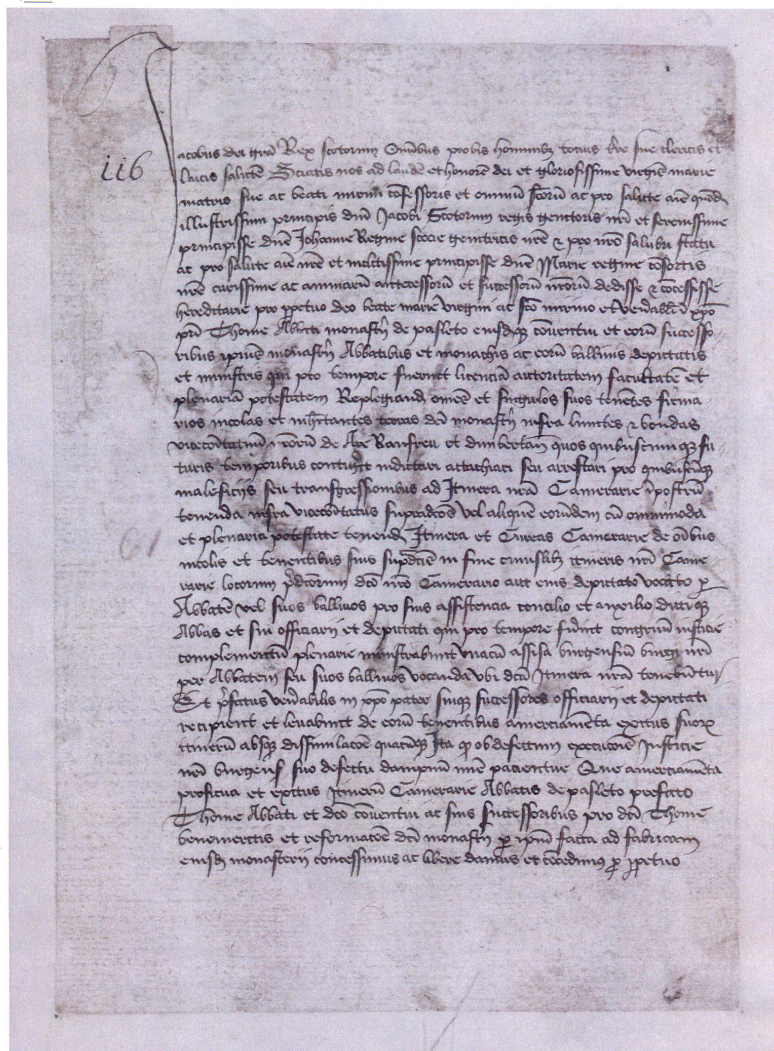 Jacobus dei gra Rex scotorum Omibus probis hominibus totius tre sue clericis et
116
laicis saltem Sciatis nos ad laude et honore dei et gloriosissime virgis marie
matris sue ac beati mirini cofessoris et omniu scoru ac pro salute aie quod
illustrissimi principis dni Jacobi Scotorum regis genitoris nri et serenissime
principisse dne Johanne Regine scocie genitricis nre & pro nro salubri statu
ac pro salute aie nre et maltissime principisse dne Marie regine cosortis
nre carissime ac animarum antecessoru et successoru nroru dedisse & cocessisse
hereditarie pro ppetuo deo beate marie virgini ac sco mirino et venabili i xpo
pri Thome Abbati monastrij de pasleto eiusdq coventui et eoru successo-
ribus ipius monastrij Abbatibus et monachis ac eoru ballivis deputatis
et ministris qui pro tempore fuerint licencia autoritatem facultate et
plenaria potestatem Replegiand omes et singulos suos tenetes firma
rios incolas et inhitantes terras dci monastrij infra limites & bondas
vicecomitatuum nroru de Are Ranfreu et dunbertan quos quibuscumque fu
turis temporibus contigerit indictari attachiari seu arrestari pro quibuscuq
maleficijs seu transgressionibus ad Itinera nra Camerarie iposteru
tenenda infra vicecomitatus supradcos vel alique eorundem cu omnimoda
et plenaria potestate tenend Itinera et Curias Camerarie de oibus
incolis et tenentibus suis supdcis in fine cuiuslibz itineris nri Came
rarie locorum pdcorum dco nro Camerario aut eius deputato vocato p
Abbate vel suos ballivos pro suis assistencia concilio et auxilio dictique
Abbas et sui officiarii et deputati qui pro tempore fuerint congruu iusticie
complementu plenarie monstrabunt assisa burgensiu burgi nri
per Abbatem seu suos ballivos vocanda ubi dca Itinera nra tenebuntur
Et pfatus venabilis in xpo pater suique successores officiarii et deputati
recipient et levabunt de eoru tenentibus amerciameta exitus suorum
itineru absq dissimilacoe quacuq Ita q ob defectum execucois Justicie
nri burgens suo defectu dampnu non pacientur Que amerciameta
proficua et exitus Itineru Camerarie Abbatis de pasleto prefato
Thome Abbati et dco coventui ac suis successoribus pro dci Thome
benemeritis et reformacoe dci monastrij p ipsu facta ad fabricam
eiusd monasterii concessimus ac libere damus et cocedimus p ppetuo